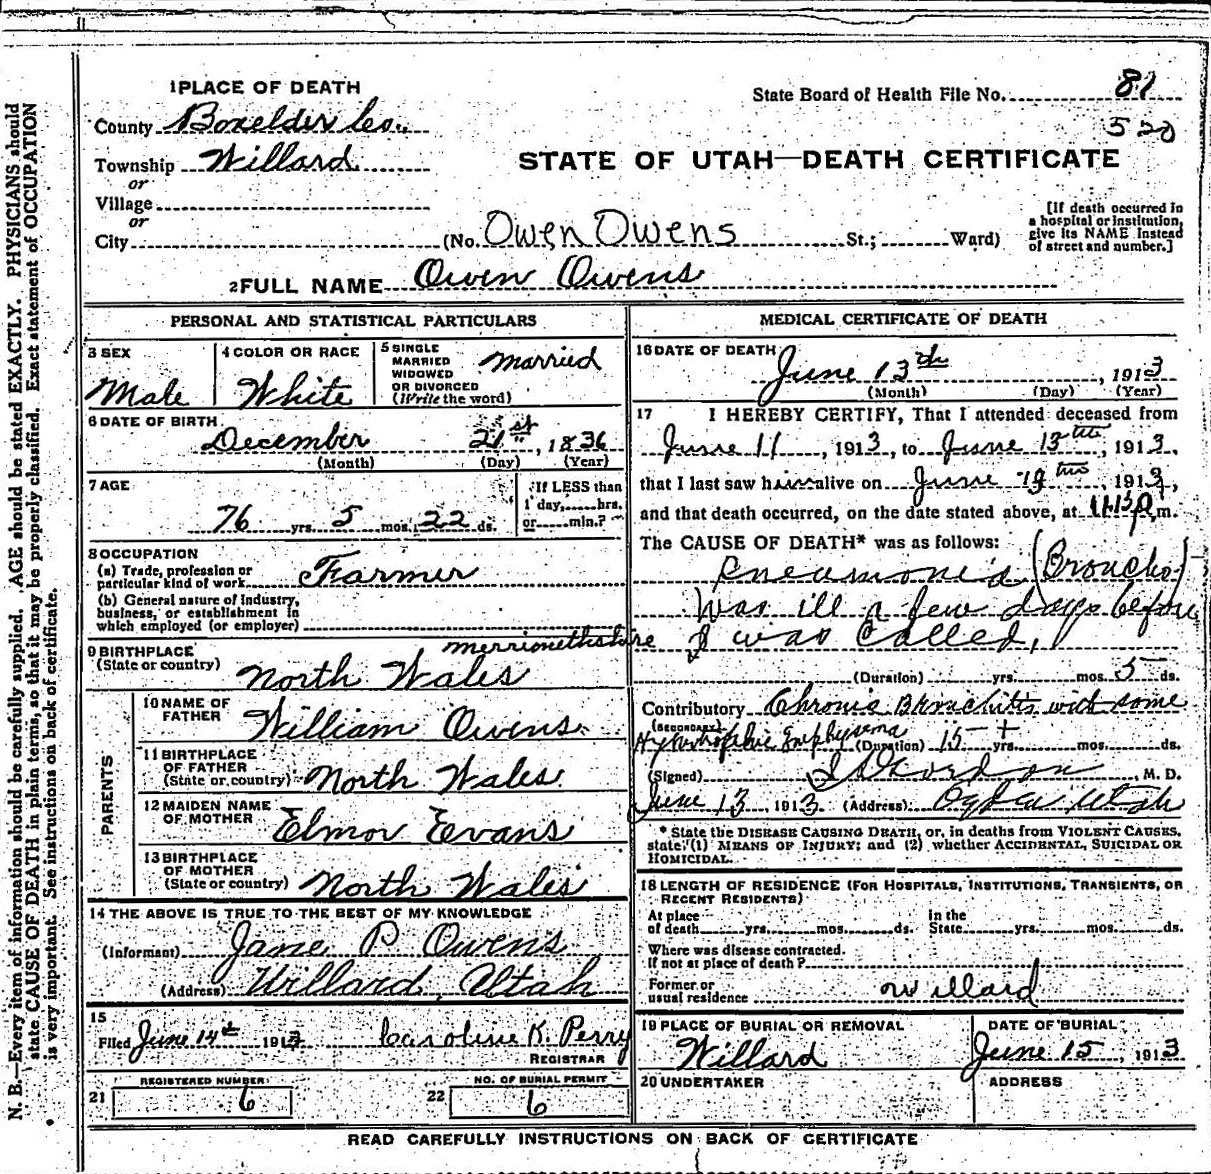 1 PLACE OF DEATH
State Board of Health File No. 81
County Boxelder Co.
520
Township Willard
STATE OF UTAH—DEATH CERTIFICATE
or
Village
or
City (No. Owen Owens St.; Ward)
[If death occurred in
a hospital or institution,
give its NAME instead
of street and number.]
2 FULL NAME Owen Owens
PERSONAL AND STATISTICAL PARTICULARS
3 SEX
Male
4 COLOR OR RACE
White
5 SINGLE
MARRIED
WIDOWED
OR DIVORCED
(Write the word)
Married
6 DATE OF BIRTH
December 21st, 1836
(Month) (Day) (Year)
7 AGE
76 yrs. 5 mos. 22 ds.
If LESS than
1 day, hrs.
or min.?
8 OCCUPATION
(a) Trade, profession or
particular kind of work Farmer
(b) General nature of industry,
business, or establishment in
which employed (or employer)
9 BIRTHPLACE
(State or country)
merrionethshire
North Wales
PARENTS
10 NAME OF
FATHER William Owens
11 BIRTHPLACE
OF FATHER
(State or country) North Wales
12 MAIDEN NAME
OF MOTHER Elmor Evans
13 BIRTHPLACE
OF MOTHER
(State or country) North Wales
14 THE ABOVE IS TRUE TO THE BEST OF MY KNOWLEDGE
(Informant) Jane P Owens
(Address) Willard, Utah
15
Filed June 14th 1913 Caroline K. Perry
REGISTRAR
REGISTERED NUMBER
21 6
NO. OF BURIAL PERMIT
22 6
MEDICAL CERTIFICATE OF DEATH
16 DATE OF DEATH
June 13th, 1913
(Month) (Day) (Year)
17 I HEREBY CERTIFY, That I attended deceased from
June 11, 1913, to June 13th, 1913,
that I last saw him alive on June, 1913,
and that death occurred, on the date stated above, at m.
The CAUSE OF DEATH* was as follows:
Pneumonia (Broncho)
Was ill a few days before
I was called,
(Duration) yrs. mos. 5 ds.
Contributory Chronic Bronchitis with some
(SECONDARY)
Hypertrophic Emphysema (Duration) 15+ yrs. mos. ds.
(Signed) Gordon, M. D.
June 13, 1913 (Address) Ogden Utah
* State the DISEASE CAUSING DEATH, or, in deaths from VIOLENT CAUSES,
state (1) MEANS OF INJURY; and (2) whether ACCIDENTAL, SUICIDAL OR
HOMICIDAL.
18 LENGTH OF RESIDENCE (FOR HOSPITALS, INSTITUTIONS, TRANSIENTS, OR
RECENT RESIDENTS)
At place
of death yrs. mos. ds.
in the
State yrs. mos. ds.
Where was disease contracted.
If not at place of death?
Former or
usual residence Willard
19 PLACE OF BURIAL OR REMOVAL
Willard
DATE OF BURIAL
June 15, 1913
20 UNDERTAKER
ADDRESS
READ CAREFULLY INSTRUCTIONS ON BACK OF CERTIFICATE
N. B.—Every item of information should be carefully supplied. AGE should be stated EXACTLY. PHYSICIANS should
state CAUSE OF DEATH in plain terms, so that it may be properly classified. Exact statement of OCCUPATION
is very important. See instructions on back of certificate.